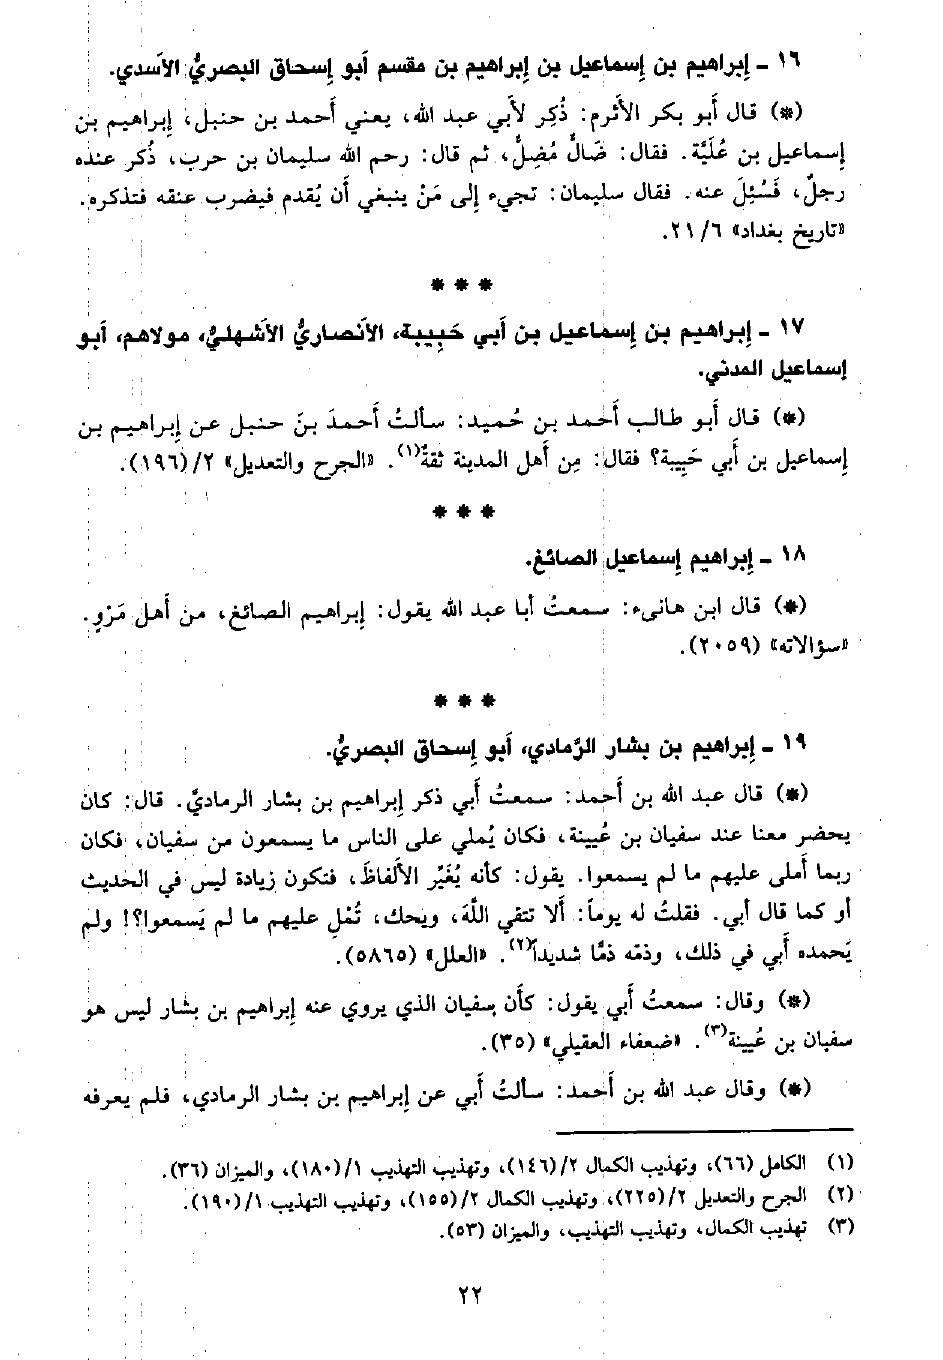 ١٦ ـ إبراهيم بن إسماعيل بن إبراهيم بن مقسم أبو إسحاق البصريُّ الأسدي.
(*) قال أبو بكر الأثرم: ذُكِر لأبي عبد الله، يعني أحمد بن حنبل، إبراهيم بن
إسماعيل بن عُلَيَّة. فقال: ضَالٌّ مُضِلٌّ، ثم قال: رحم الله سليمان بن حرب، ذُكر عنده
رجلٌ، فَسُئِلَ عنه. فقال سليمان: تجيء إلى مَنْ ينبغي أن يُقدم فيضرب عنقه فتذكره.
«تاريخ بغداد» ٦/٢١.
* * *
١٧ ـ إبراهيم بن إسماعيل بن أبي حَبِيبة، الأنصاريُّ الأشهليُّ، مولاهم، أبو
إسماعيل المدني.
(*) قال أبو طالب أحمد بن حُميد: سألتُ أحمدَ بنَ حنبل عن إبراهيم بن
إسماعيل بن أبي حَبِيبة؟ فقال: مِن أهل المدينة ثقةٌ(١). «الجرح والتعديل» ٢/(١٩٦).
* * *
١٨ ـ إبراهيم إسماعيل الصائغ.
(*) قال ابن هانىء: سمعتُ أبا عبد الله يقول: إبراهيم الصائغ، من أهل مَرْوٍ.
«سؤالاته» (٢٠٥٩).
* * *
١٩ ـ إبراهيم بن بشار الرَّمادي، أبو إسحاق البصريُّ.
(*) قال عبد الله بن أحمد: سمعتُ أبي ذكر إبراهيم بن بشار الرماديَّ. قال: كان
يحضر معنا عند سفيان بن عُيينة، فكان يُملي على الناس ما يسمعون من سفيان، فكان
ربما أملى عليهم ما لم يسمعوا. يقول: كأنه يُغَيِّر الألفاظَ، فتكون زيادة ليس في الحديث
أو كما قال أبي. فقلتُ له يوماً: أَلا تتقي اللَّهَ، ويحك، تُمْلِ عليهم ما لم يَسمعوا؟! ولم
يَحمده أبي في ذلك، وذمّه ذمًّا شديداً(٢). «العلل» (٥٨٦٥).
(*) وقال: سمعتُ أبي يقول: كأن سفيان الذي يروي عنه إبراهيم بن بشار ليس هو
سفيان بن عُيينة(٣). «ضعفاء العقيلي» (٣٥).
(*) وقال عبد الله بن أحمد: سألتُ أبي عن إبراهيم بن بشار الرمادي، فلم يعرفه
(١) الكامل (٦٦)، وتهذيب الكمال ٢/(١٤٦)، وتهذيب التهذيب ١/(١٨٠)، والميزان (٣٦).
(٢) الجرح والتعديل ٢/(٢٢٥)، وتهذيب الكمال ٢/(١٥٥)، وتهذيب التهذيب ١/(١٩٠).
(٣) تهذيب الكمال، وتهذيب التهذيب، والميزان (٥٣).
٢٢